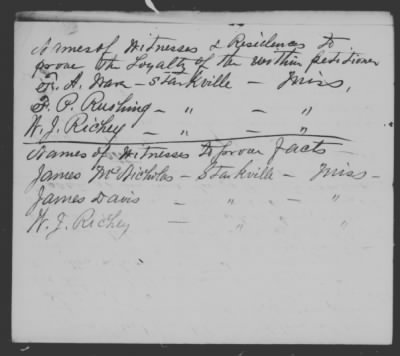 Names of Witnesses & Residences to
prove the Loyalty of the within petitioner
Dr. A. Ware - Starkville - Miss,
F. P. Rushing - " - "
W. J. Richey - " - "
Names of Witnesses to prove facts -
James McNicholas - Starkville - Miss -
James Davis - " - "
W. J. Richey - " - "